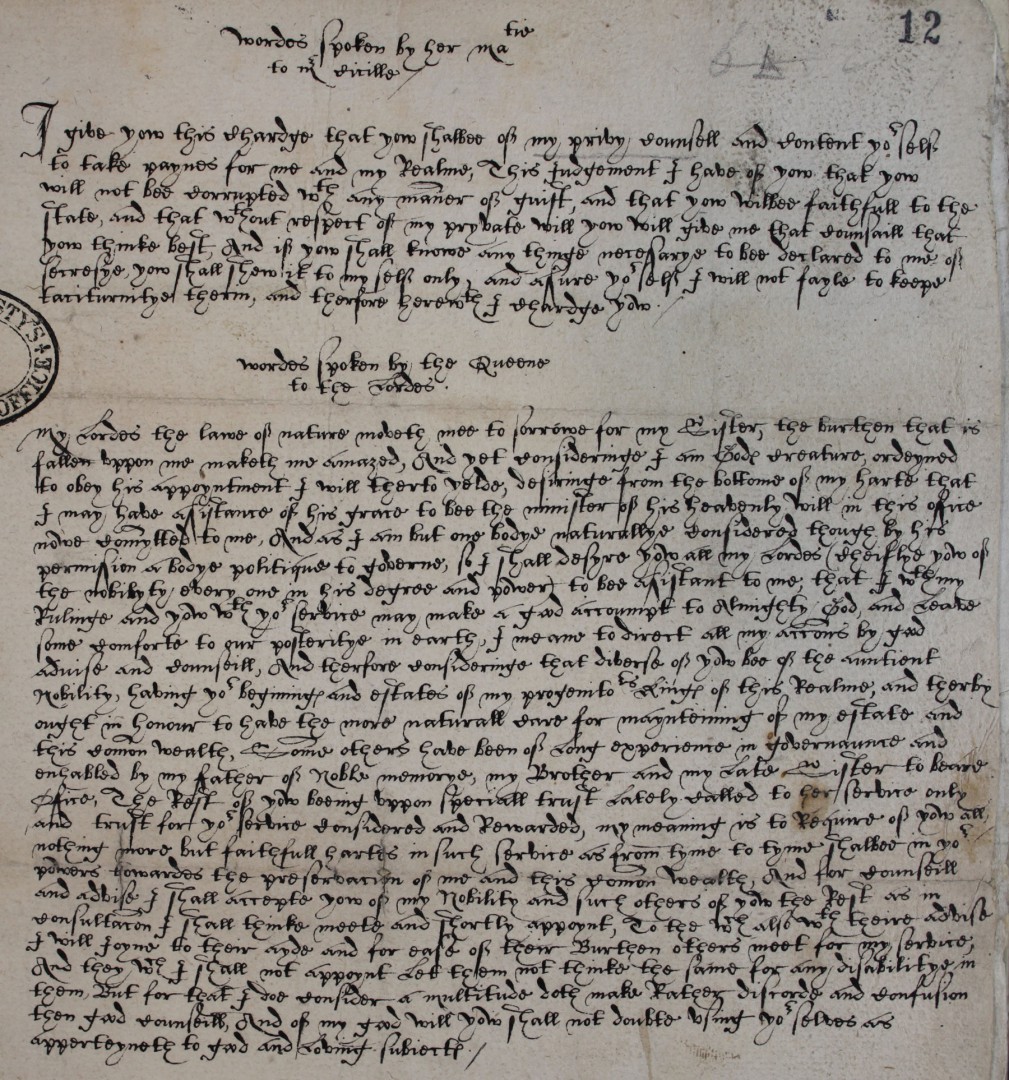 12
wordes spoken by her Ma^tie
to m^r Cicille
I give yow this Chardge that yow shalbee of my privy Counsell and Content yo^r self
to take paynes for me and my Realme, This Judgement I have of yow that yow
will not bee Corrupted w^th any maner of guift, and that yow wilbee faithfull to the
state, and that w^thout respect of my pryvate will yow will give me that Counsaill that
yow thinke best, And if yow shall knowe any thinge necessarye to bee declared to me of
secresye, yow shall shew it to my self only, and assure yo^r self I will not fayle to keepe
taciturnitye therin, and therfore herew^th I Chardge yow.
wordes spoken by the Queene
to the Lordes.
My Lordes the lawe of nature moveth mee to sorrowe for my Sister, the burthen that is
fallen uppon me maketh me amazed, And yet Consideringe I am Gods Creature, ordeyned
to obey his appoyntment I will therto yelde, desiringe from the bottome of my harte that
I may have assistance of his grace to bee the minister of his heavenly will in this office
nowe Comytted to me, And as I am but one bodye naturallye Considered though by his
permission a bodye politique to governe, so I shall desyre yow all my Lordes (Cheiflye yow of
the nobility, every one in his degree and power) to bee assistant to me, that I w^th my
Rulinge and yow w^th yo^r service may make a good accoumpt to Almighty God, and Leave
some Comforte to our posteritye in earth, I meane to direct all my accons by good
advise and Counseill, And therfore Consideringe that diverse of yow bee of the auntient
Nobility, having yo^r beginings and estates of my progenito^rs Kings of this Realme, and therby
ought in honour to have the more naturall Care for maynteining of my estate and
this Comon wealth, Some others have been of Long experience in governaunce and
enhabled by my father of Noble memorye, my Brother and my Late Sister to beare
Office, The Rest of yow beeing uppon speciall trust Lately Called to her service only
and trust for yo^r service Considered and Rewarded, my meaning is to Require of yow all
nothing more but faithfull hartes in such service as from tyme to tyme shalbee in yo^r
powers towardes the preservacion of me and this Comon wealth, And for Counseill
and advise I shall accepte yow of my Nobility and such others of yow the Rest as in
Consultacon I shall thinke meete and shortly appoynt, To the w^ch also w^th theire advise
I will Joyne to their ayde and for ease of their Burthen others meet for my service,
And they w^ch I shall not appoynt Let them not thinke the same for any disabilitye in
them, But for that I doe Consider a multitude doth make Rather discorde and Confusion
then good Counseill, And of my good will yow shall not doubte using yo^r selves as
apperteyneth to good and Loving subiects.